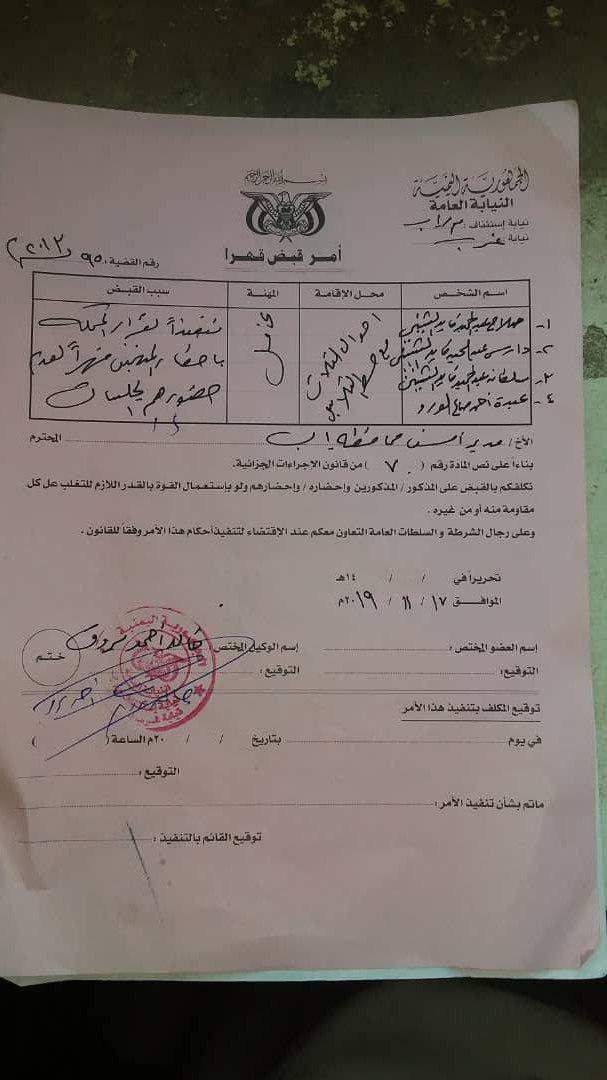 بسم الله الرحمن الرحيم
الجمهورية اليمنية
النيابة العامة
نيابة إستئناف : م / اب
نيابة : غرب
أمر قبض قهرا
رقم القضية : ٩٥ ٢٠١٣م
اسم الشخص محل الإقامة المهنة سبب القبض
١- صلاح عبدالحميد الشبيبي
٢- عبدالحميد
٣- سلطان عبدالحميد
٤- عبدة احمد صالح
تنفيذاً لقرار المحكمة
باحضار المتهمين قهراً لعدم
حضورهم جلسات
الأخ / مدير امن محافظة / اب المحترم
بناءاً على نص المادة رقم ( ٧٠ ) من قانون الإجراءات الجزائية.
تكلفكم بالقبض على المذكور / المذكورين وإحضاره / وإحضارهم ولو بإستعمال القوة بالقدر اللازم للتغلب على كل
مقاومة منه أو من غيره .
وعلى رجال الشرطة و السلطات العامة التعاون معكم عند الإقتضاء لتنفيذ أحكام هذا الأمر وفقاً للقانون .
تحريراً في / / ١٤هـ
الموافق ١٧ / ١١ / ٢٠١٩م
إسم العضو المختص : إسم الوكيل المختص : خالد احمد
التوقيع : التوقيع :
ختم
توقيع المكلف بتنفيذ هذا الأمر
في يوم بتاريخ / / ٢٠م الساعة ( )
التوقيع :
ماتم بشأن تنفيذ الأمر :
توقيع القائم بالتنفيذ :